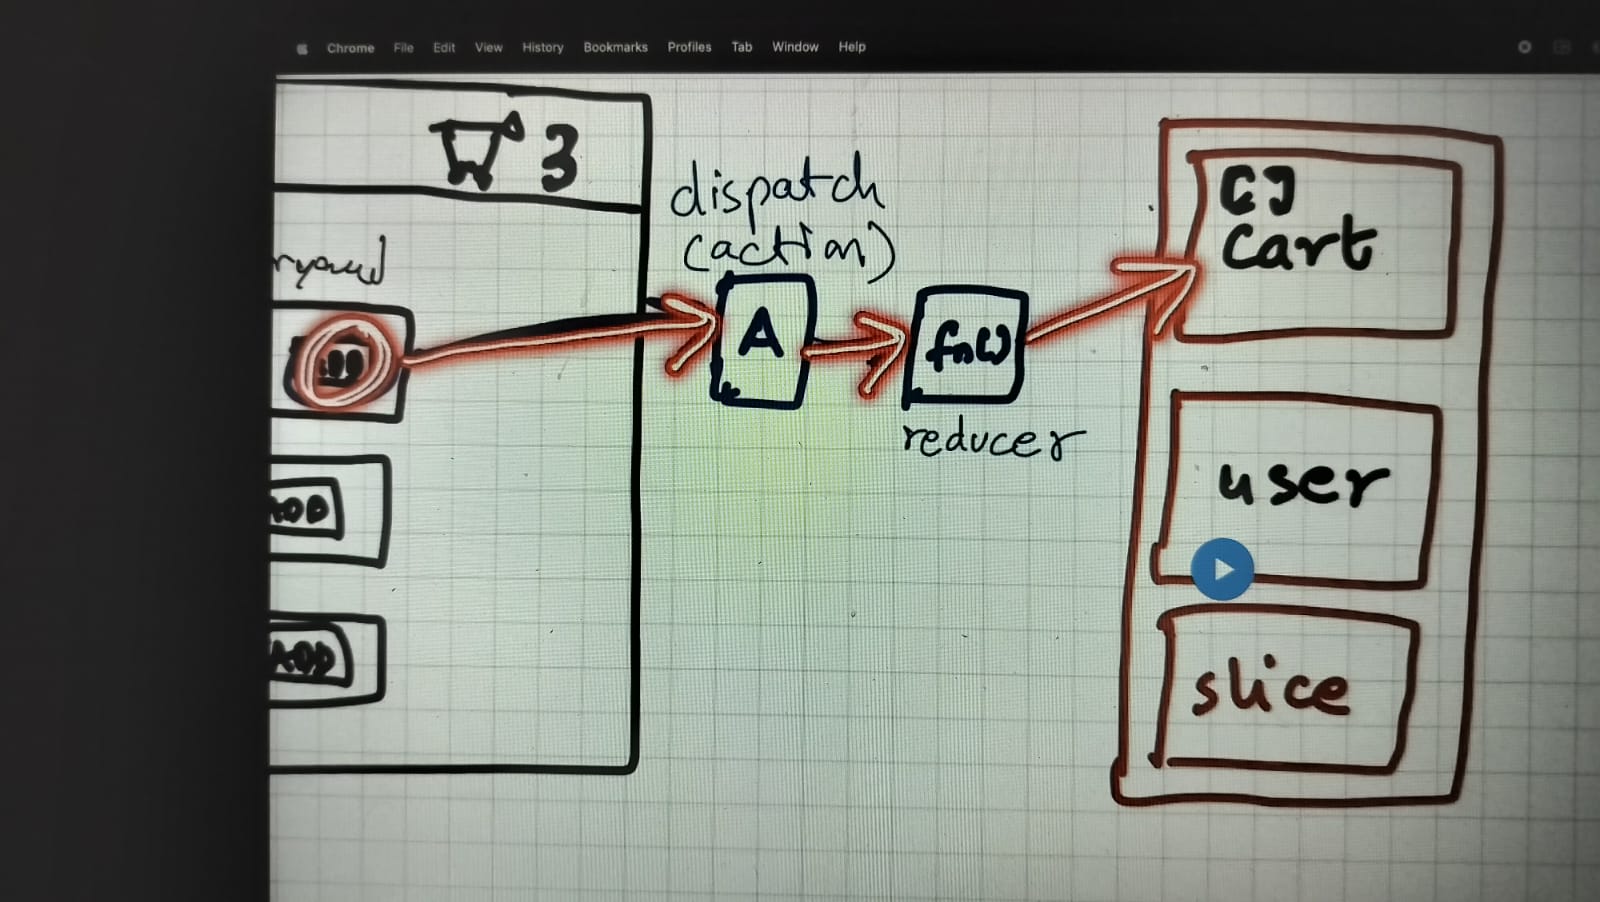 Chrome File Edit View History Bookmarks Profiles Tab Window Help
3
dispatch
(action)
A
fn()
reducer
ADD
ADD
[]
Cart
user
slice